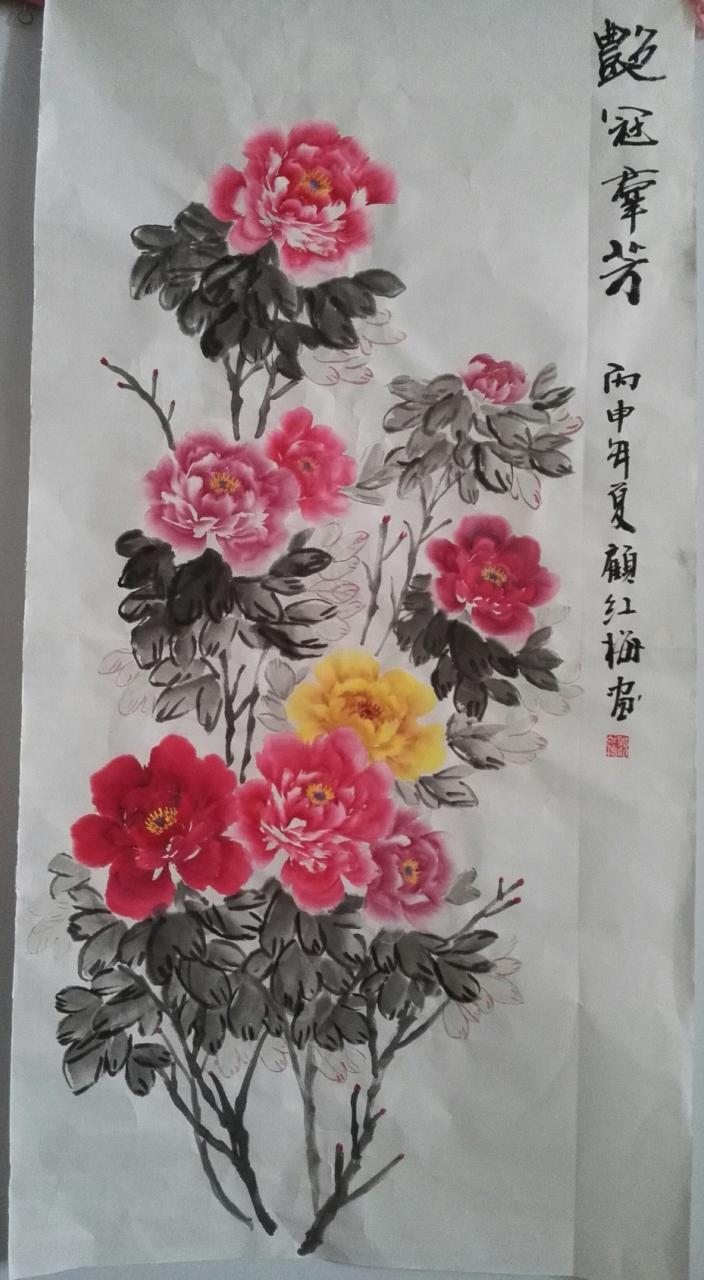 艷冠羣芳
丙申年夏顧红梅画